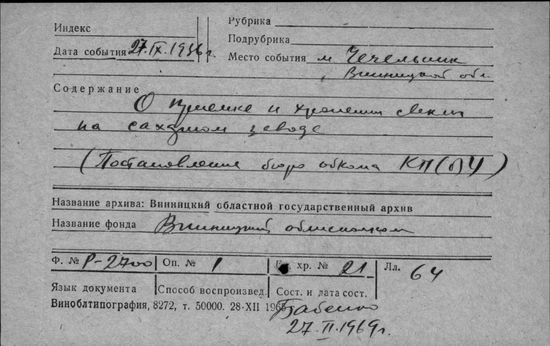 Индекс
Рубрика
Дата события 27.IX.1946 г.
Подрубрика
Место события м Чечельник
Винницкой обл.
Содержание
О приемке и хранении свеклы
на сахарном заводе
(Постановление бюро обкома КП(б)У)
Название архива: Винницкий областной государственный архив
Название фонда Винницкий облисполком
Ф. № Р-2700 Оп. № 1 хр. № 21 Лл. 64
Язык документа Способ воспроизвед. Сост. и дата сост.
Виноблтипография, 8272, т. 50000. 28-XII 196
Бабенко
27.II.1969г.